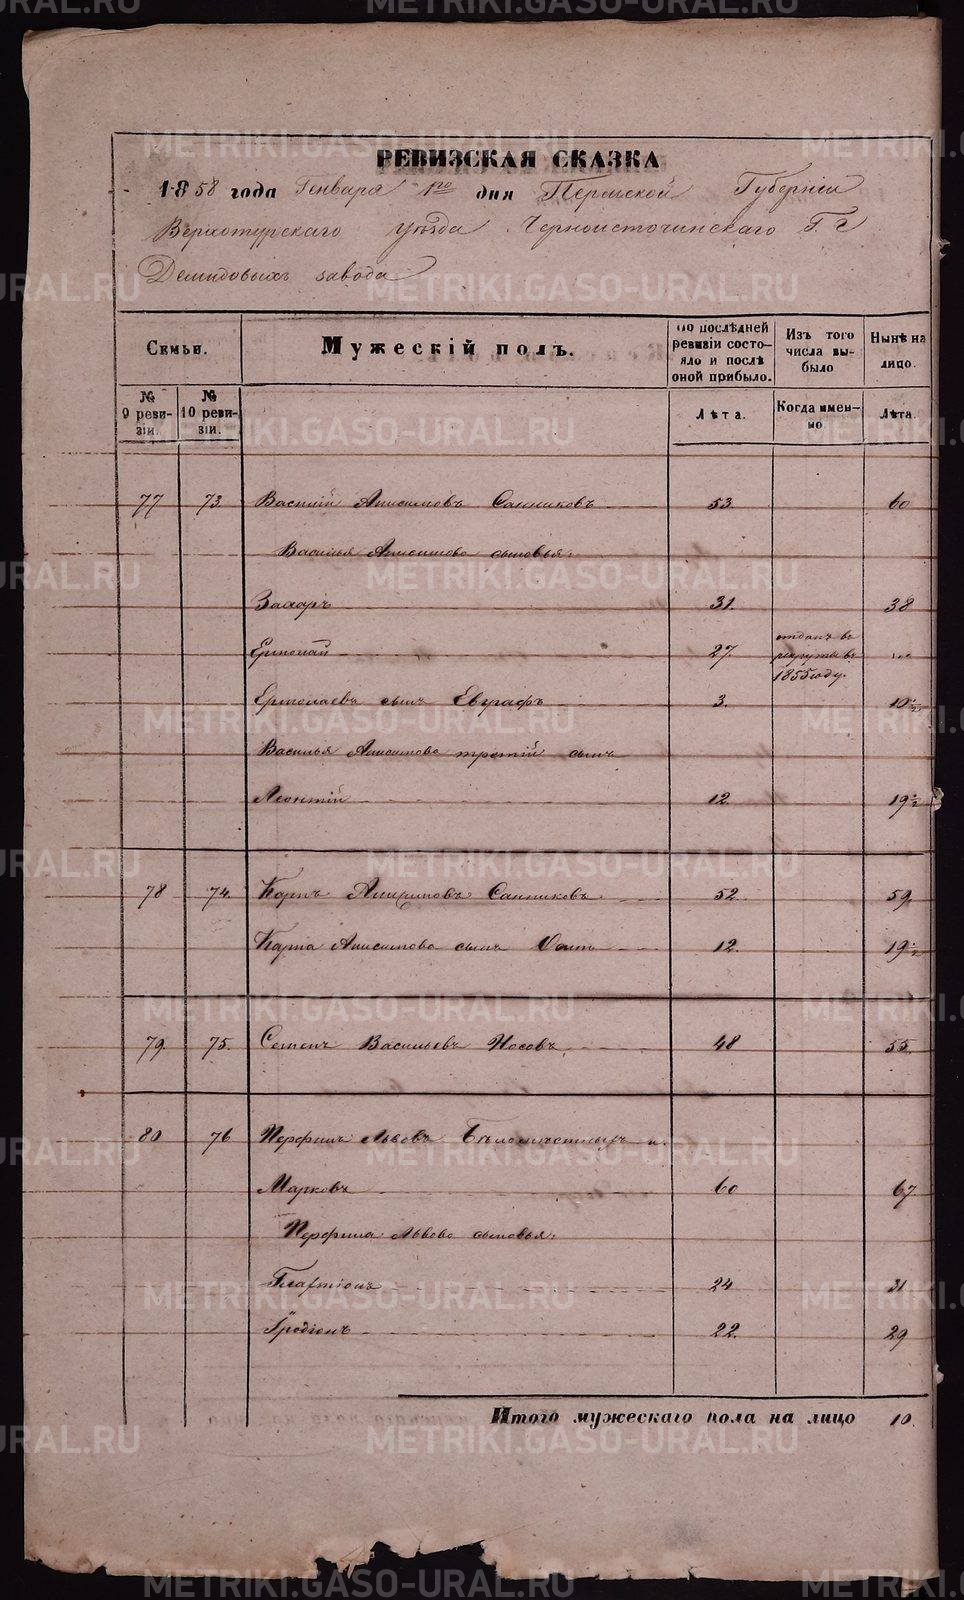 РЕВИЗСКАЯ СКАЗКА
1858 года Генваря 1го дня Пермской Губерніи
Верхотурскаго уѣзда Черноисточинскаго Г. г
Демидовыхъ завода
Семьи.
Мужескій полъ.
По послѣдней ревизіи состояло и послѣ оной прибыло.
Изъ того числа выбыло
Нынѣ на лицо.
№ 9 ревизіи.
№ 10 ревизіи.
Лѣта.
Когда именно
Лѣта.
77 73. Василій Анисимовъ Санниковъ 53. 60
Василья Анисимова сыновья:
Захаръ 31. 38
Ермолай 27. отданъ въ рекруты въ 1855 году. "
Ермолаевъ сынъ Евграфъ 3. 10½
Василья Анисимова третій сынъ
Леонтій 12. 19½
78 74. Карпъ Анисимовъ Санниковъ 52. 59.
Карпа Анисимова сынъ Осипъ 12. 19½
79. 75. Семенъ Васильевъ Носовъ 48 55.
80 76 Перфилъ Львовъ и
Марковъ 60 67.
Перфила Львова сыновья:
24 31
Иродіонъ 22. 29
Итого мужескаго пола на лицо 10.
METRIKI.GASO-URAL.RU